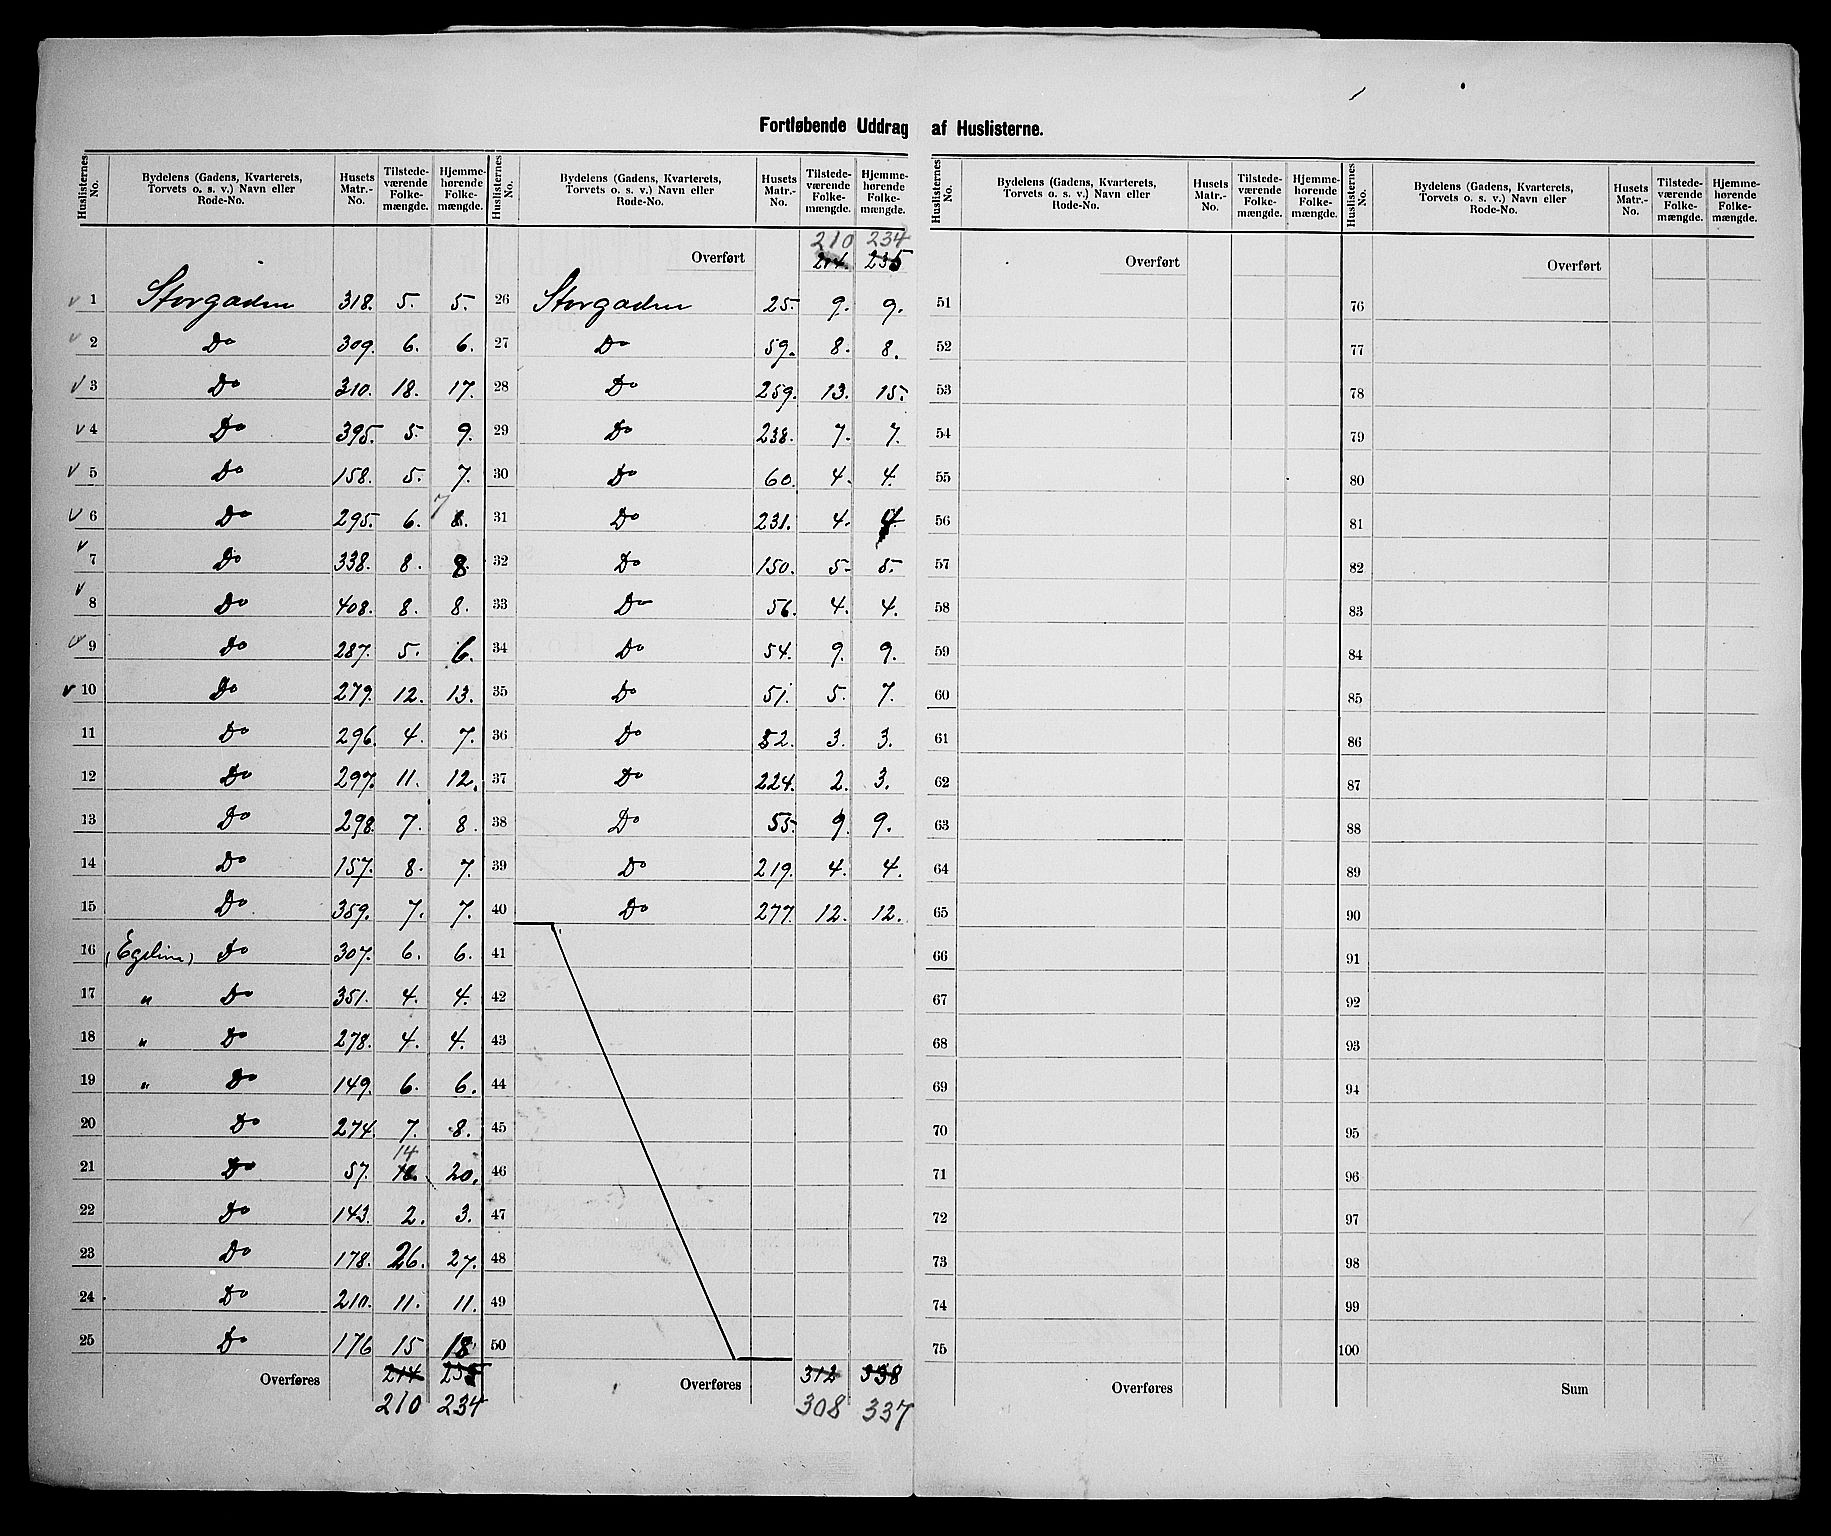 Fortløbende Uddrag af Huslisterne.
Huslisternes No. | Bydelens (Gadens, Kvarterets, Torvets o. s. v.) Navn eller Rode-No. | Husets Matr.-No. | Tilstedeværende Folkemængde. | Hjemmehørende Folkemængde. | Huslisternes No. | Bydelens (Gadens, Kvarterets, Torvets o. s. v.) Navn eller Rode-No. | Husets Matr.-No. | Tilstedeværende Folkemængde. | Hjemmehørende Folkemængde. | Huslisternes No. | Bydelens (Gadens, Kvarterets, Torvets o. s. v.) Navn eller Rode-No. | Husets Matr.-No. | Tilstedeværende Folkemængde. | Hjemmehørende Folkemængde. | Huslisternes No. | Bydelens (Gadens, Kvarterets, Torvets o. s. v.) Navn eller Rode-No. | Husets Matr.-No. | Tilstedeværende Folkemængde. | Hjemmehørende Folkemængde.
210 234
Overført 214 235 Overført Overført
1 Storgaden 318. 5. 5. 26 Storgaden 25. 9. 9. 51 76
2 Do 309. 6. 6. 27 Do 59. 8. 8. 52 77
3 Do 310. 18. 17. 28 Do 259. 13. 15. 53 78
4 Do 395. 5. 9. 29 Do 238. 7. 7. 54 79
5 Do 158. 5. 7. 30 Do 60. 4. 4. 55 80
7
6 Do 295. 6. 8. 31 Do 231. 4. 4 56 81
7 Do 338. 8. 8. 32 Do 150. 5. 5. 57 82
8 Do 408. 8. 8. 33 Do 56. 4. 4. 58 83
9 Do 287. 5. 6. 34 Do 54. 9. 9. 59 84
10 Do 279. 12. 13. 35 Do 51. 5. 7. 60 85
11 Do 296. 4. 7. 36 Do 52. 3. 3. 61 86
12 Do 297. 11. 12. 37 Do 224. 2. 3. 62 87
13 Do 298. 7. 8. 38 Do 55. 9. 9. 63 88
14 Do 157. 8. 7. 39 Do 219. 4. 4. 64 89
15 Do 359. 7. 7. 40 Do 277. 12. 12. 65 90
16 Do 307. 6. 6. 41 66 91
17 " Do 351. 4. 4. 42 67 92
18 " Do 278. 4. 4. 43 68 93
19 " Do 149. 6. 6. 44 69 94
20 Do 274. 7. 8. 45 70 95
14
21 Do 57. 18. 20. 46 71 96
22 Do 143. 2. 3. 47 72 97
23 Do 178. 26. 27. 48 73 98
24 Do 210. 11. 11. 49 74 99
25 Do 176 15 18. 50 75 100
Overføres 214 235 Overføres 312 338 Overføres Sum
210 234 308 337